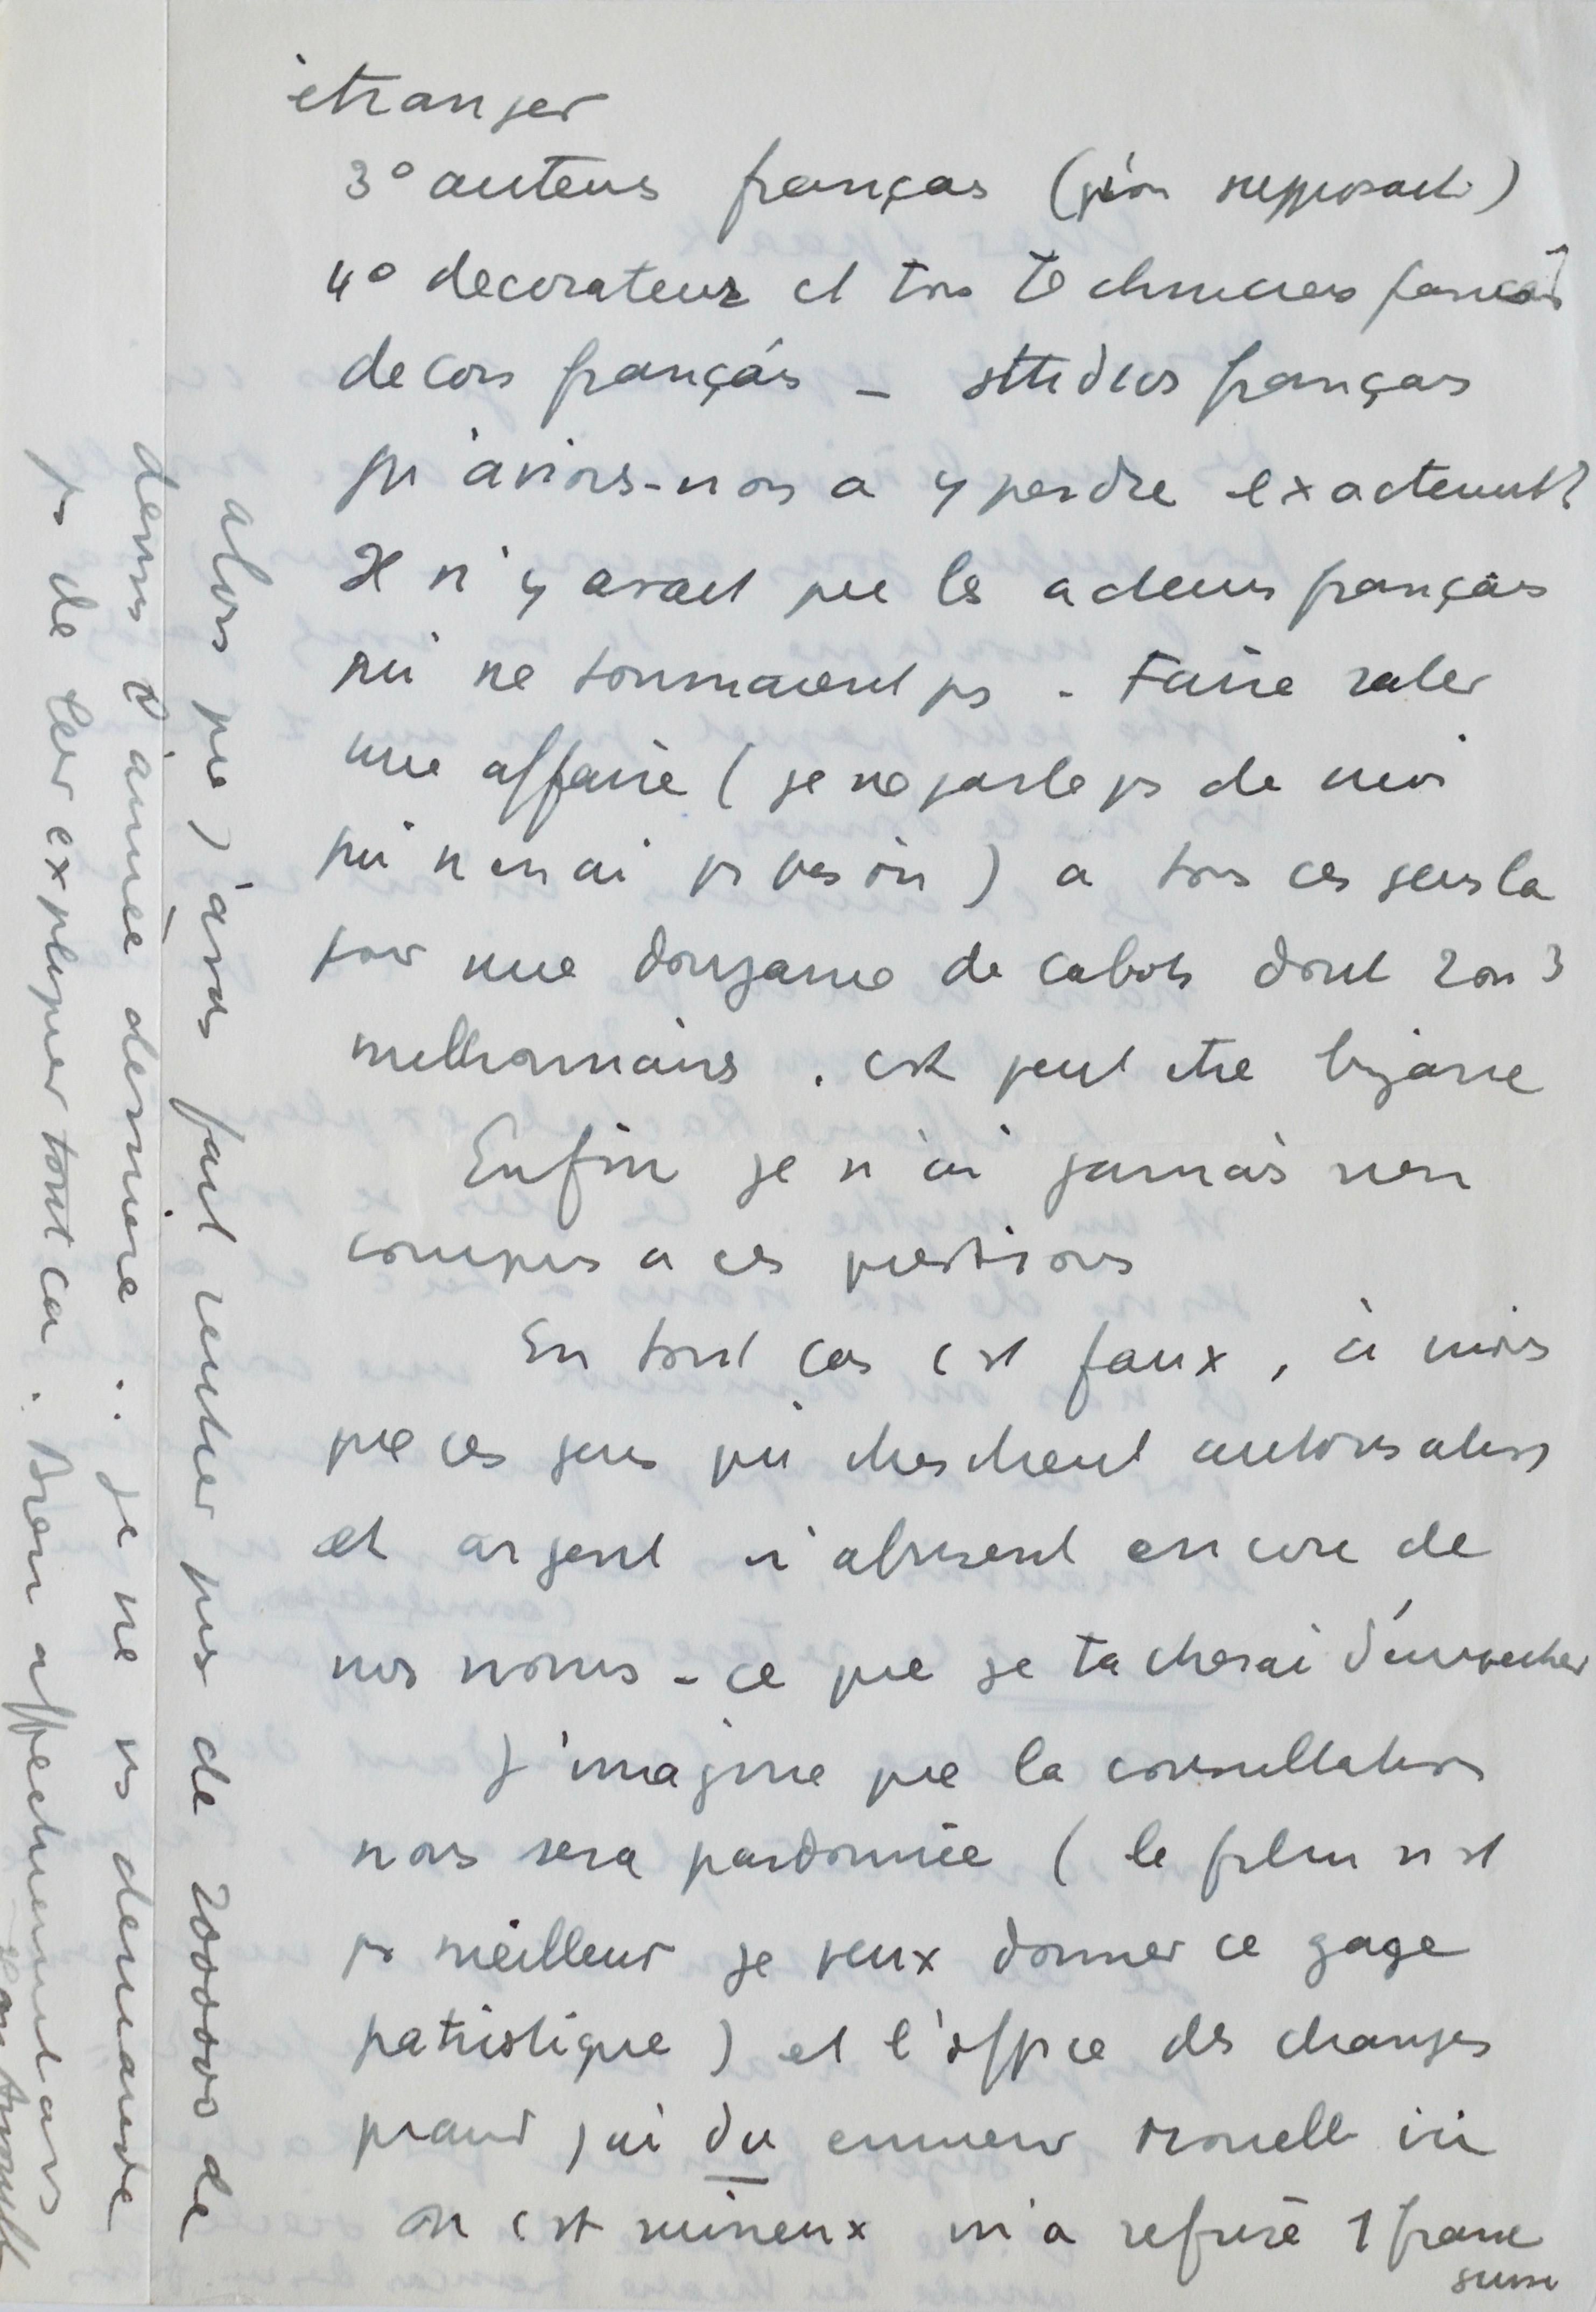 étranger
3° auteurs français (j'en suppose)
4° decorateur et tous techniciens français
decors français - studios français
qu'avions-nous a y perdre exactement?
Il n'y avait que les acteurs français
qui ne tournaient ps - Faire rater
une affaire (je ne parle ps de moi
qui n'en ai ps besoin) a tous ces gens la
pour une douzaine de cabots dont 2 ou 3
millionnaires. c'est peut etre bizarre
Enfin je n'ai jamais rien
compris a ces questions
En tout cas c'est faux, à moins
que ces gens qui cherchent autorisations
et argent n'abusent encore de
nos noms - ce que je tacherai d'empecher
J'imagine que la
nous sera pardonnée (le film n'est
ps meilleur je peux donner ce gage
patriotique) et l'office des changes
quand j'ai du emmener Monelle ici
ou c'est ruineux m'a refusé 1 franc
suisse
alors que j'avais fait rentrer plus de 200000 de
devises l'année derniere... je ne vs demande
ps de leur expliquer tout ca. Bien affectueusement
Jean Anouilh